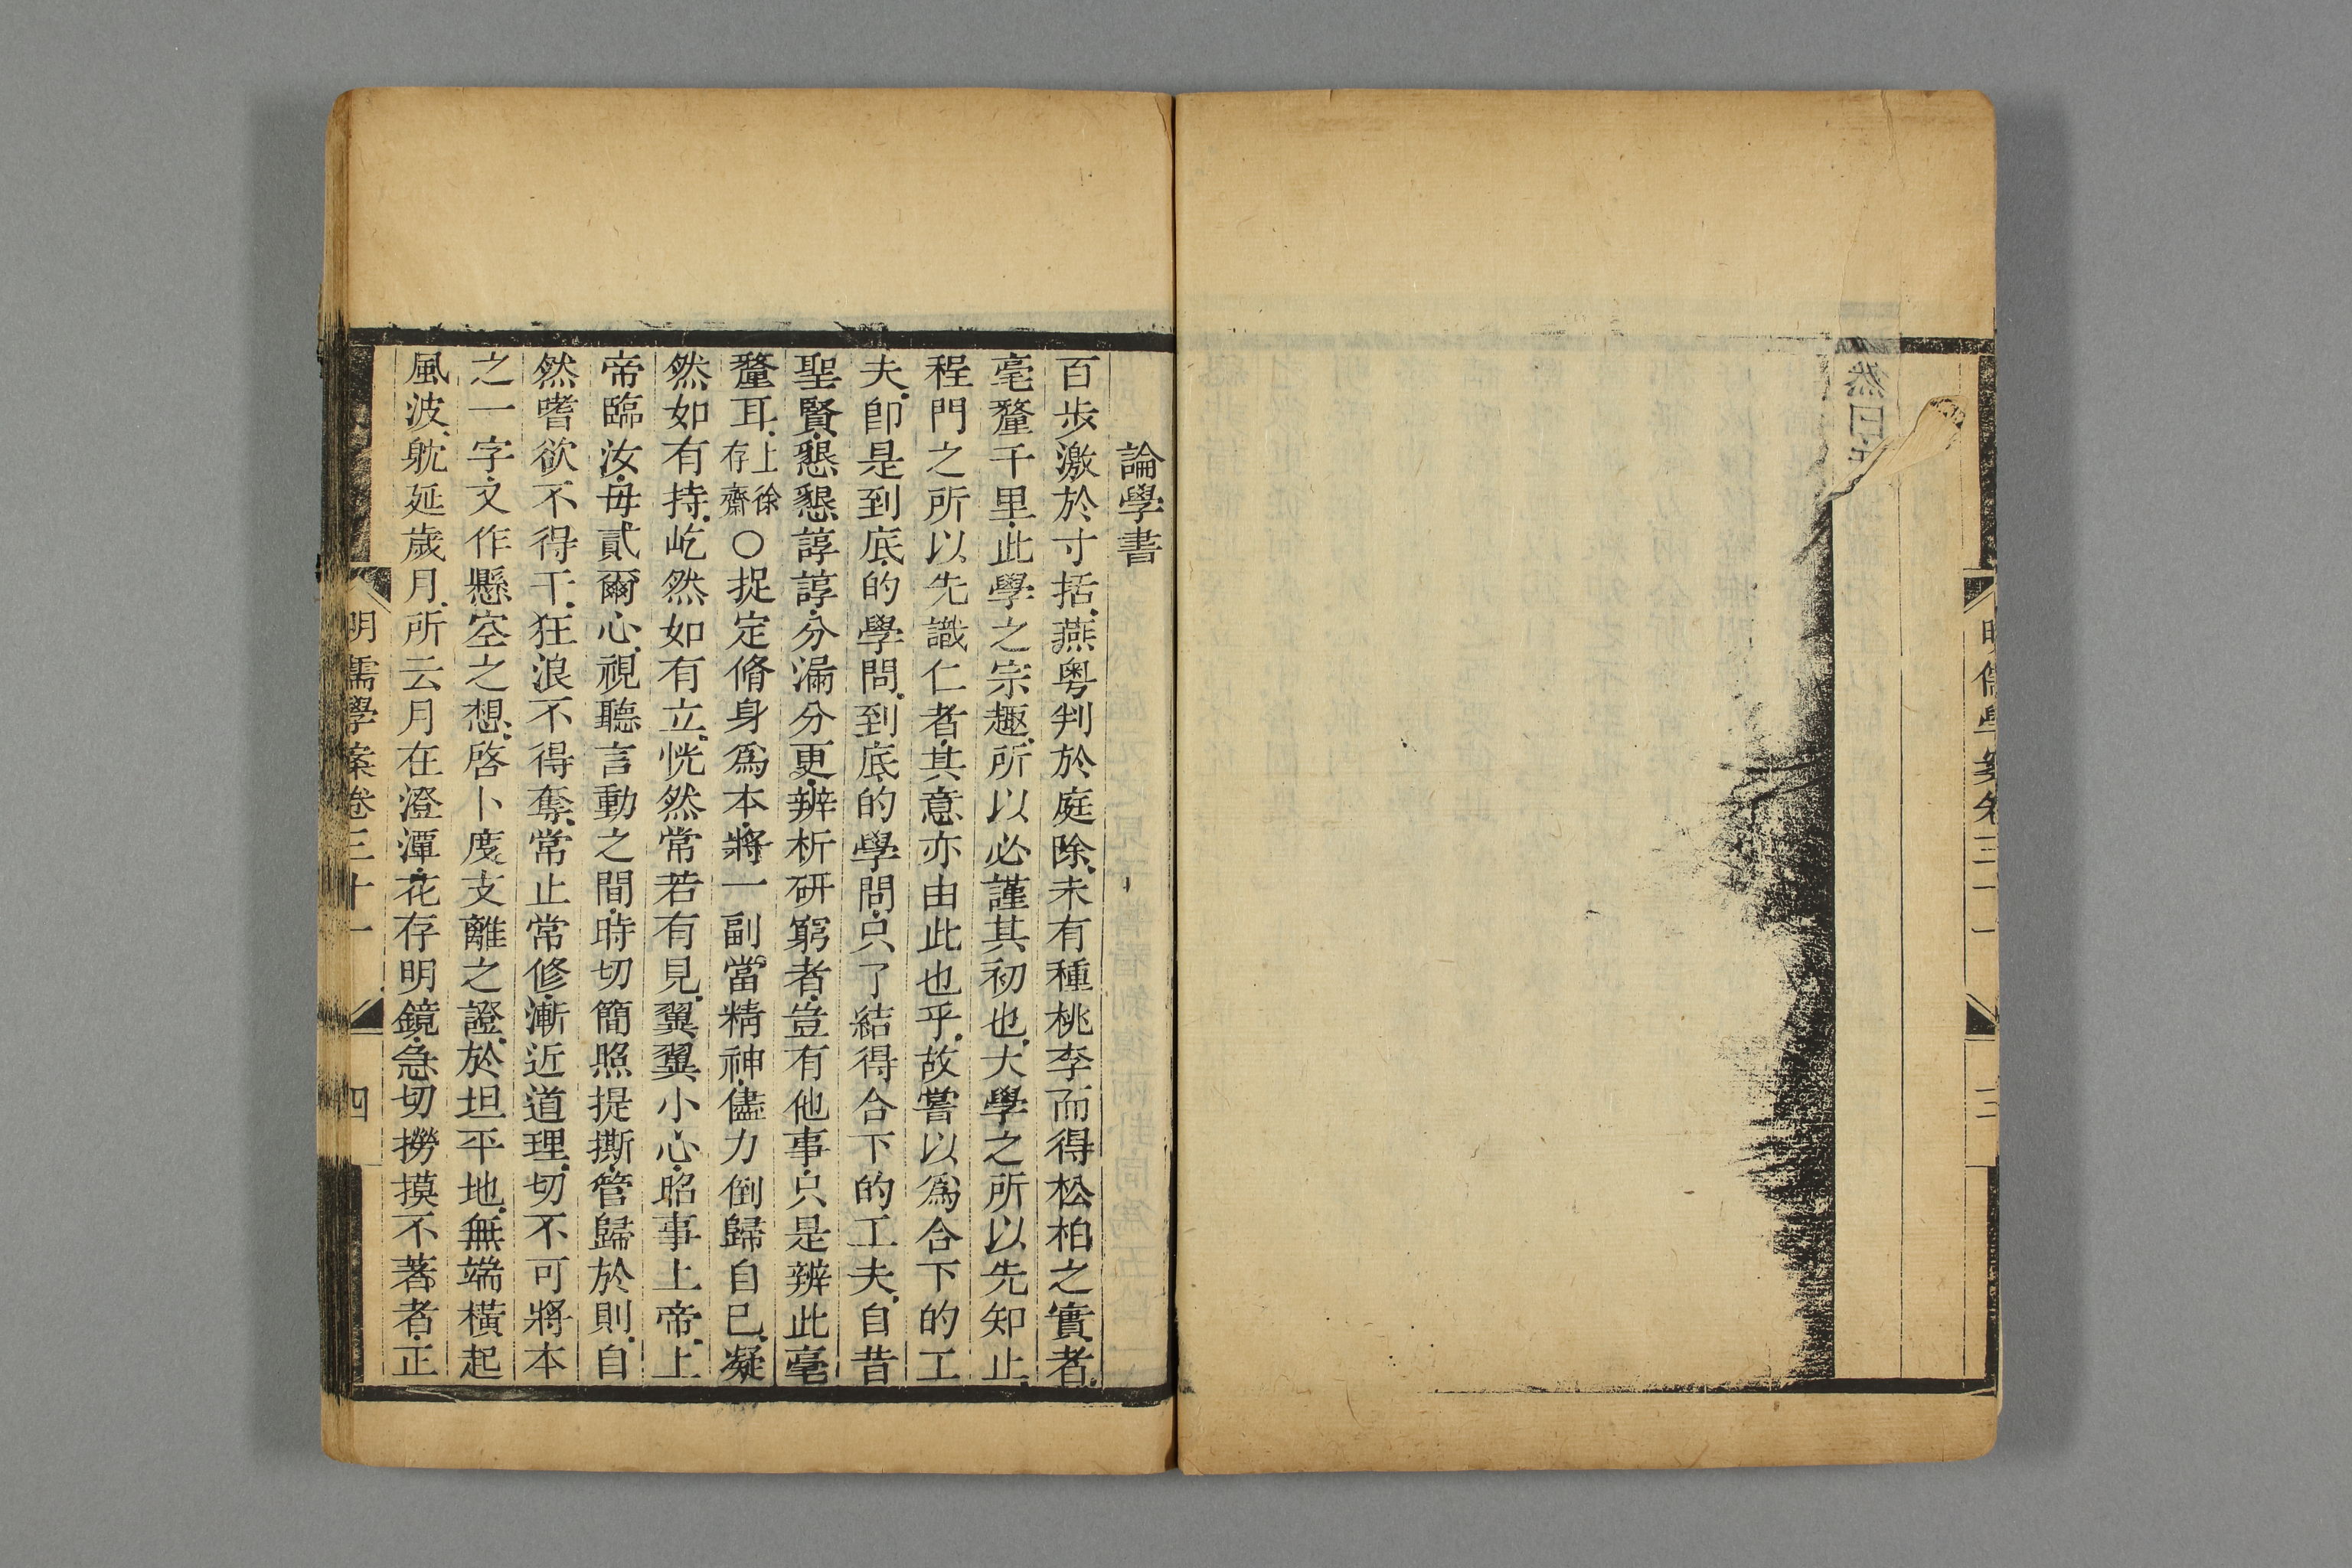 然曰
明儒學案卷三十一
論學書
百步激於寸括燕粤判於庭除未有種桃李而得松柏之實者
毫釐千里此學之宗趣所以必謹其初也大學之所以先知止
程門之所以先識仁者其意亦由此也乎故嘗以爲合下的工
夫卽是到底的學問到底的學問只了結得合下的工夫自昔
聖賢懇懇諄諄分漏分更辨析研窮者豈有他事只是辨此毫
釐耳上徐存齋〇捉定脩身爲本將一副當精神儘力倒歸自己凝
然如有持屹然如有立恍然常若有見翼翼小心昭事上帝上
帝臨汝毋貳爾心視聽言動之間時切簡照提撕管歸於則自
然嗜欲不得干狂浪不得奪常止常修漸近道理切不可將本
之一字又作懸空之想啓卜度支離之證於坦平地無端橫起
風波躭延歲月所云月在澄潭花存明鏡急切撈摸不著者正
明儒學案卷三十一
四